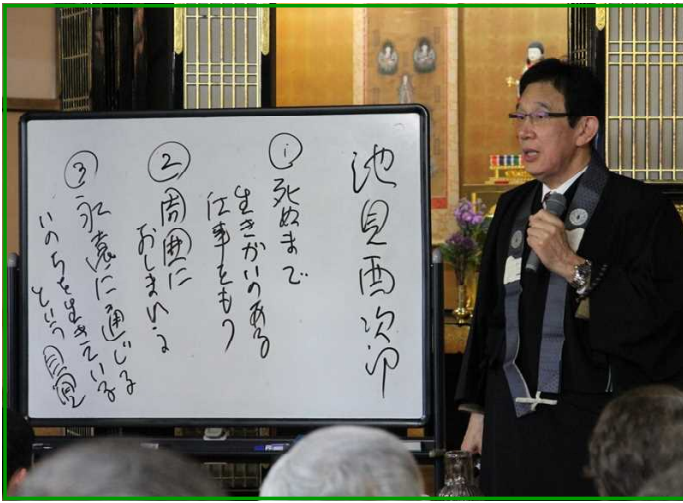 池見酉次郎
①死ぬまで
生きがいのある
仕事をもつ
②周囲に
おしまいる
③永遠に通じる
いのちを生きている
という自覚